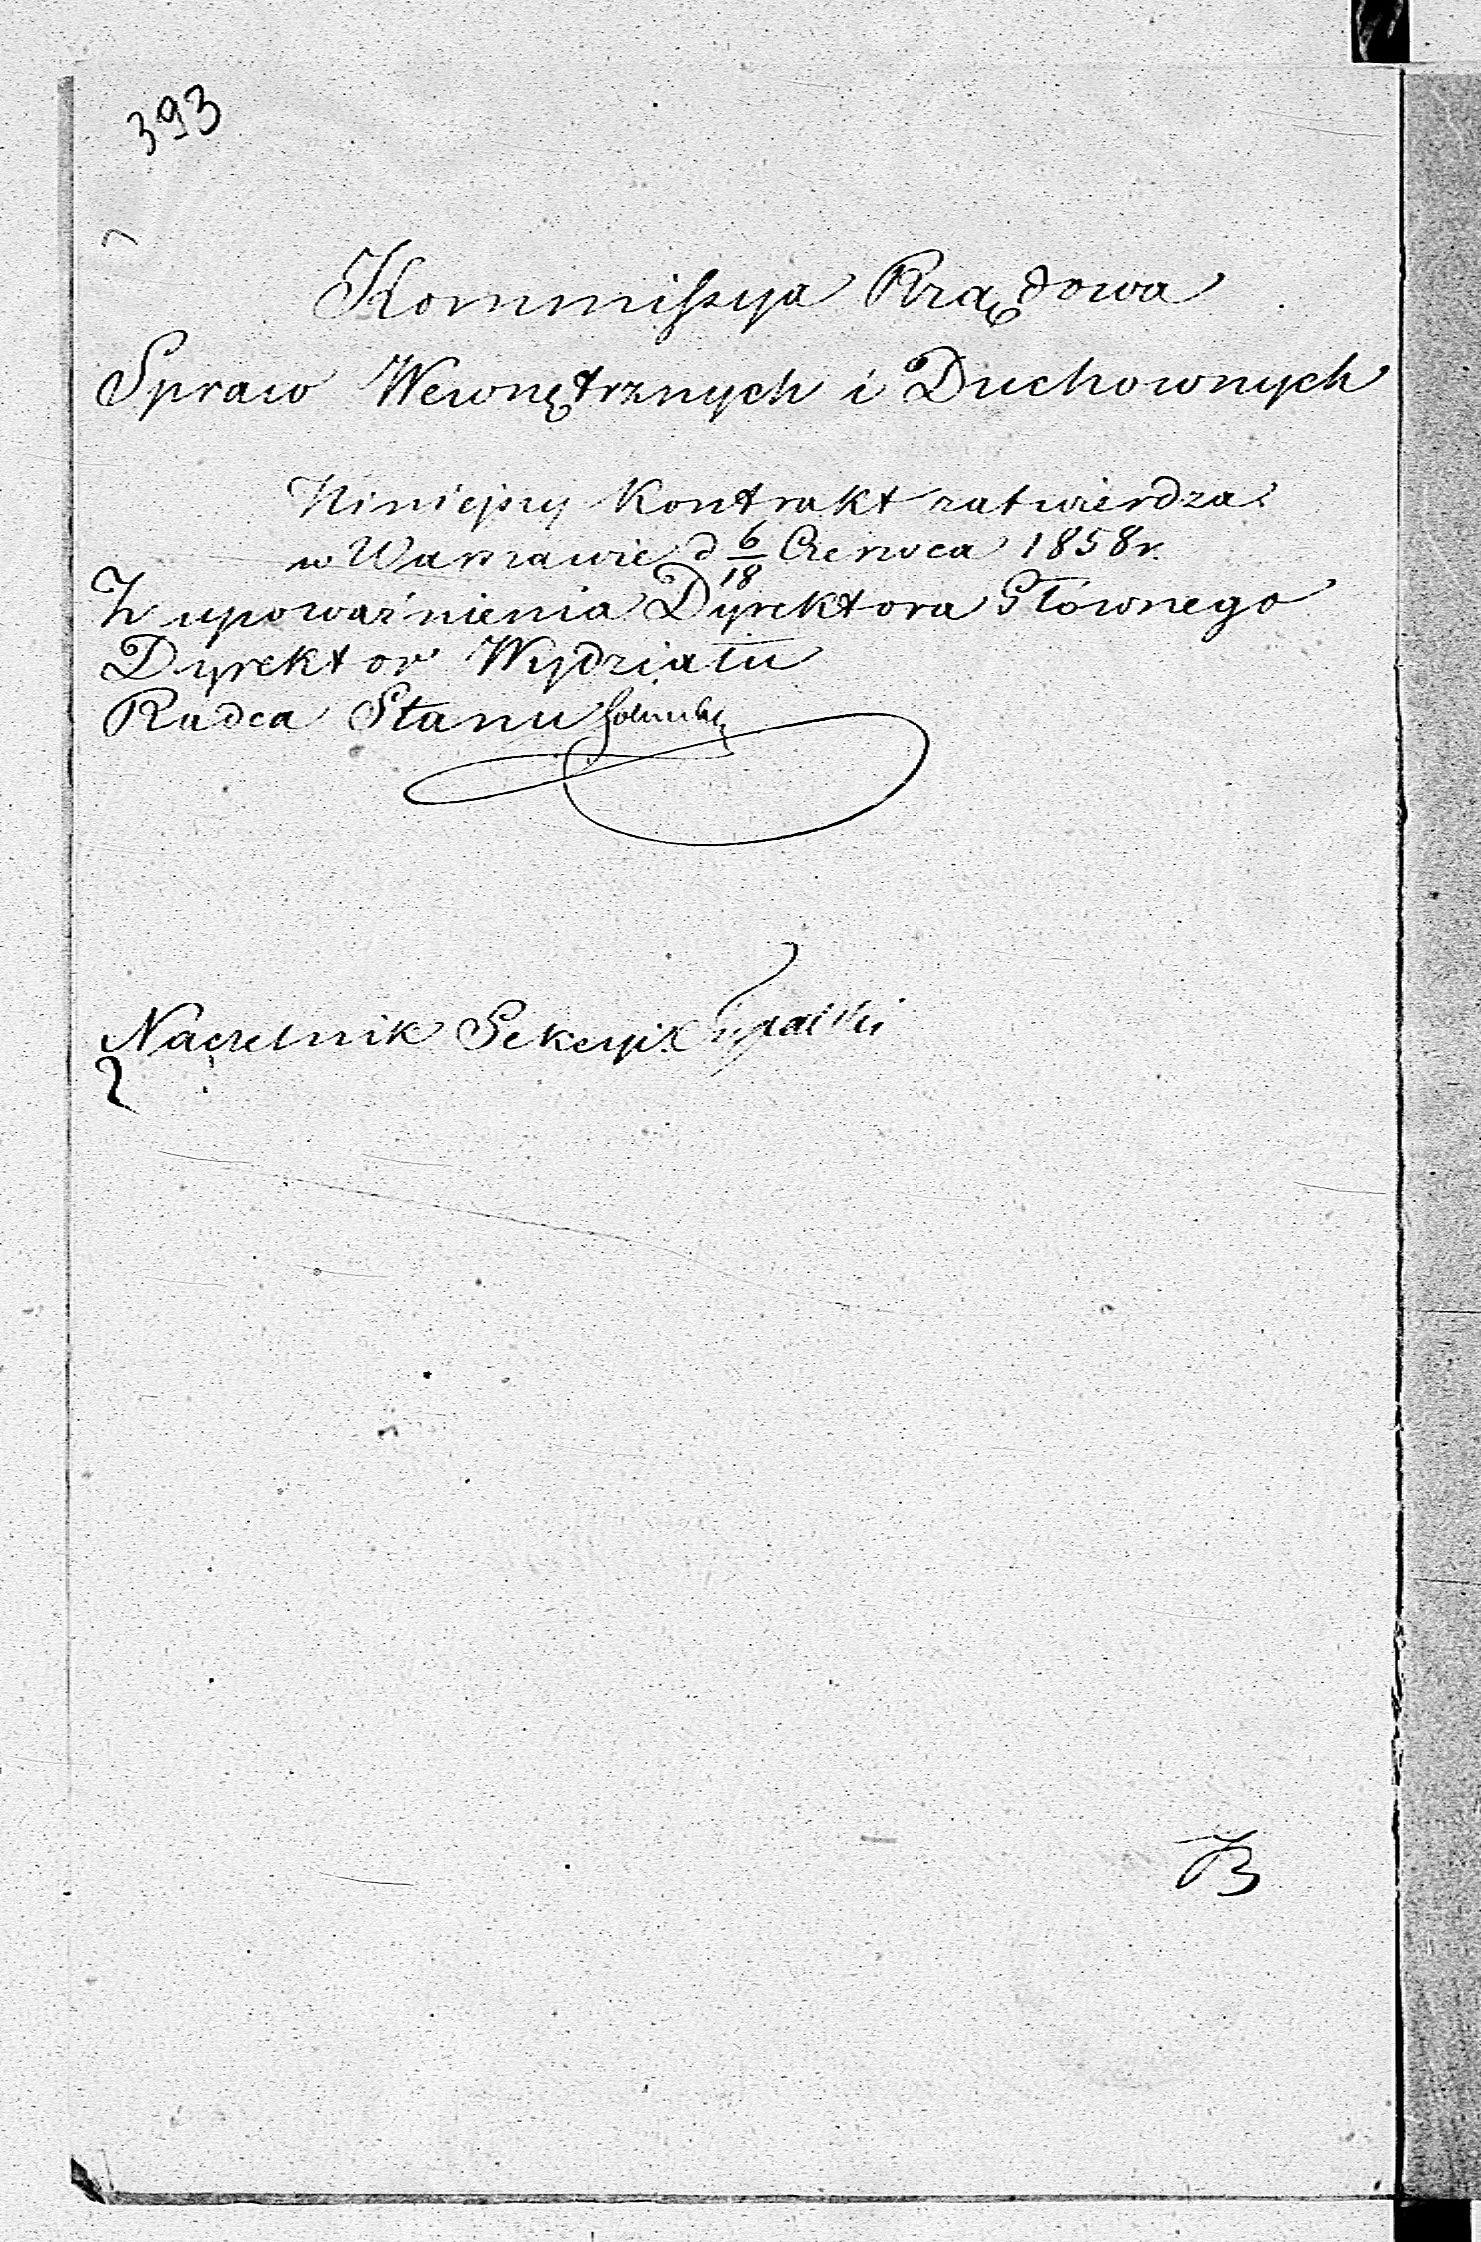 393
Kommissya Rządowa
Spraw Wewnętrznych i Duchownych
Niniejszy Kontrakt zatwierdza
w Warszawie d 6/18 Czerwca 1858 r.
Z upoważnienia Dyrektora Głównego
Dyrektor Wydziału
Radca Stanu
Naczelnik Sekcyi